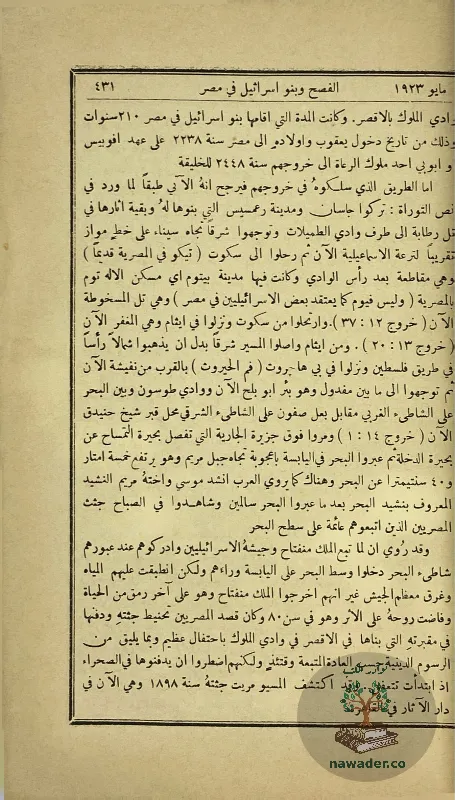 مايو ١٩٢٣ الفصح وبنو اسرائيل في مصر ٤٣١
وادي الملوك بالاقصر. وكانت المدة التي اقامها بنو اسرائيل في مصر ٢١٠سنوات
وذلك من تاريخ دخول يعقوب واولاده الى مصر سنة ٢٢٣٨ على عهد افوبيس
و ابوبي احد ملوك الرعاة الى خروجهم سنة ٢٤٤٨ للخليقة
اما الطريق الذي سلكوهُ في خروجهم فيرجح انهُ الآتي طبقاً لما ورد في
نص التوراة : تركوا جاسان ومدينة رعمسيس التي بنوها لهُ وبقية اثارها في
تل رطابة الى طرف وادي الطميلات وتوجهوا شرقاً تجاه سيناء على خطٍ مواز
تقريباً لترعة الاسماعيلية الآن ثم رحلوا الى سكوت ( تيكو في المصرية قديماً )
وهي مقاطعة بعد رأس الوادي وكانت فيها مدينة بيتوم اي مسكن الاله توم
بالمصرية ( وليس فيوم كما يعتقد بعض الاسرائيليين في مصر ) وهي تل المسخوطة
الآن ( خروج ١٢ : ٣٧ ).وارتحلوا من سكوت ونزلوا في ايثام وهي المغفر الآن
( خروج ١٣ : ٢٠ ) . ومن ايثام واصلوا المسير شرقاً بدل ان يذهبوا شمالاً رأساً
في طريق فلسطين ونزلوا في بي هاحيروت ( فم الحيروث ) بالقرب من نفيشة الآن
ثم توجهوا الى ما بين مفدول وهو بئر ابو بلح الآن ووادي طوسون وبين البحر
على الشاطىء الغربي مقابل بعل صفون على الشاطىء الشرقي محل قبر شيخ حنيدق
الآن ( خروج ١٤ : ١ ) ومروا فوق جزيرة الجارية التي تفصل بحيرة التمساح عن
بحيرة الدخلة ثم عبروا البحر في اليابسة باعجوبة تجاه جبل مريم وهو يرتفع خمسة امتار
و ٤٠ سنتيمترا عن البحر وهناك كما يروي العرب انشد موسى واخته مريم النشيد
المعروف بنشيد البحر بعد ما عبروا البحر سالمين وشاهدوا في الصباح جثث
المصريين الذين اتبعوهم عائمة على سطح البحر
وقد رُوي ان لما تبع الملك منفتاح وجيشهُ الاسرائيليين وادركوهم عند عبورهم
شاطىء البحر دخلوا وسط البحر على اليابسة وراءهم ولكن انطبقت عليهم المياه
وغرق معظم الجيش غير انهم اخرجوا الملك منفتاح وهو على آخر رمق من الحياة
وفاضت روحهُ على الأثر وهو في سن ٨٠ وكان قصد المصريين تحنيط جثته ودفنها
في مقبرته التي بناها في الاقصر في وادي الملوك باحتفال عظيم وبما يليق من
الرسوم الدينية حسب العادة المتبعة وقتئذ ولكنهم اضطروا ان يدفنوها في الصحراء
إذ ابتدأت تتعفن وقد اكتشف المسيو مريت جثتهُ سنة ١٨٩٨ وهي الآن في
دار الآثار في القاهرة
نوادر الكتب
nawader.co